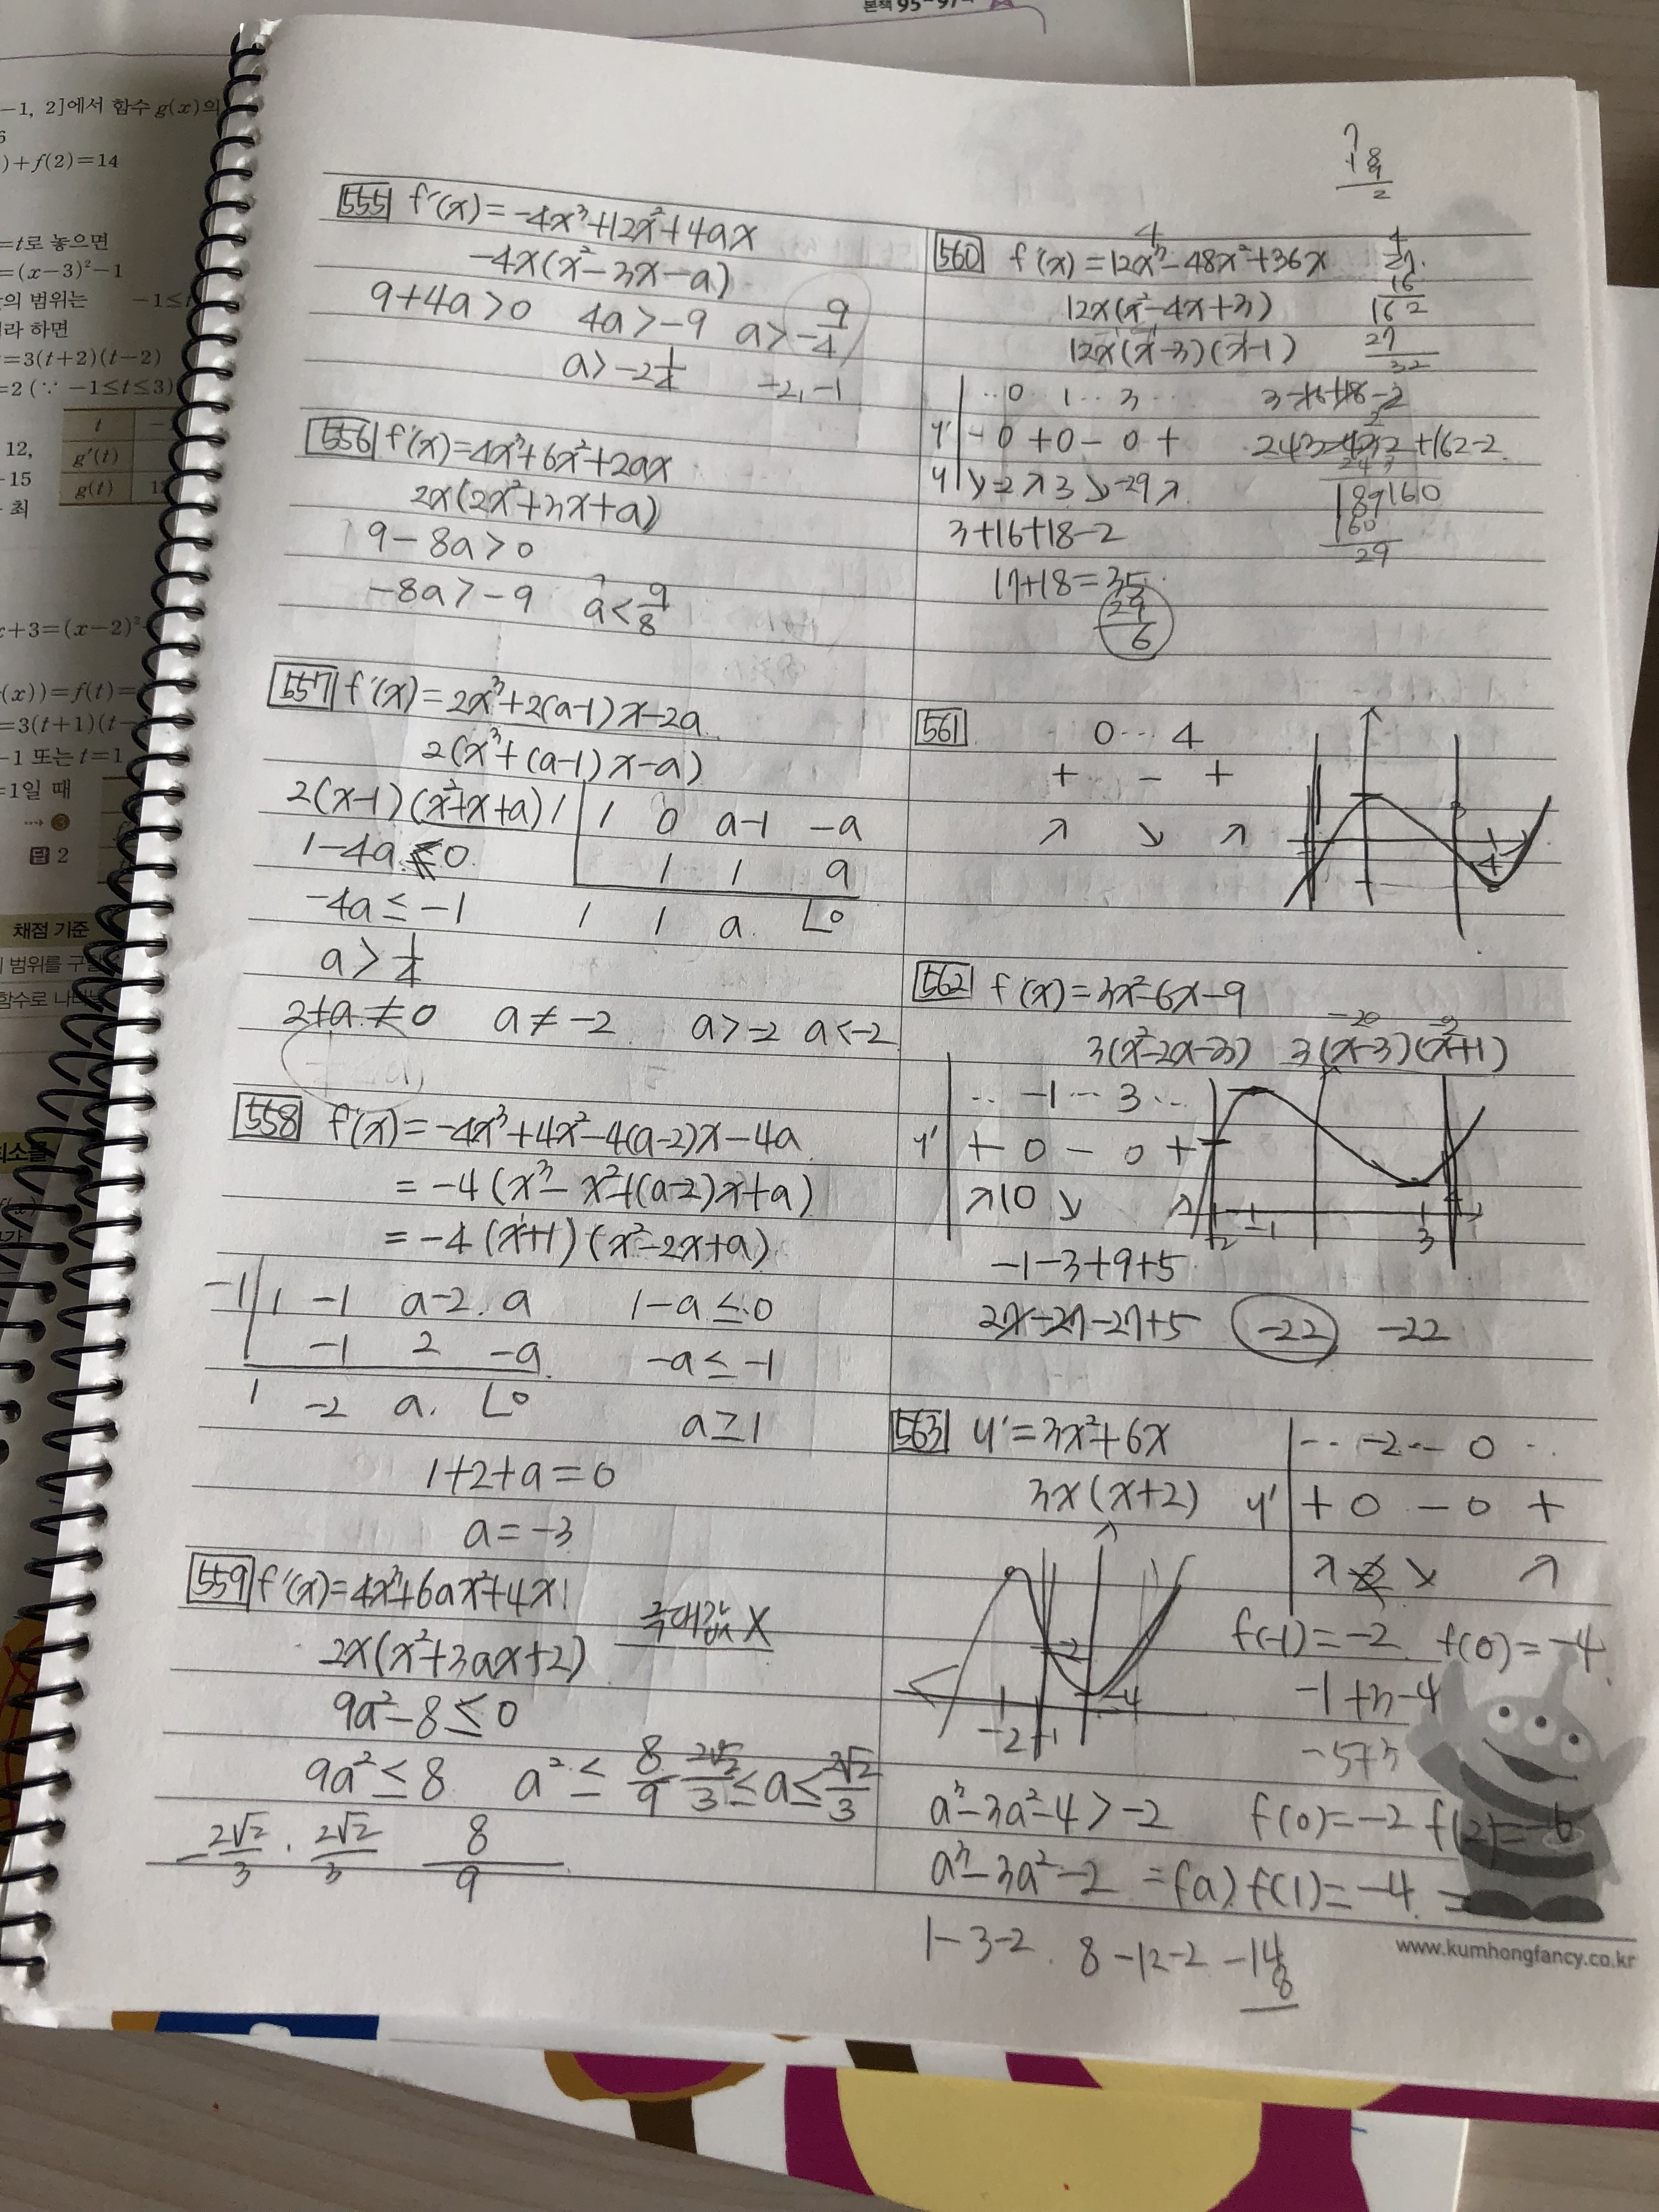 본책 95~97쪽
-1, 2]에서 함수 g(x)의
6
)+f(2)=14
=t로 놓으면
=(x-3)²-1
의 범위는 -1≤t
라 하면
=3(t+2)(t-2)
=2 (∵ -1≤t≤3)
t
12,
g'(t)
-15
g(t) 1
최
x+3=(x-2)²
(x))=f(t)=
=3(t+1)(t-
-1 또는 t=1
=1일 때
… ❸
답 2
채점 기준
범위를 구
함수로 나타
최소를
555 f'(x)=-4x³+12x²+4ax
-4x(x²-3x-a)
9+4a>0 4a>-9 a>-9/4
a>-2 1/4 -2, -1
556 f'(x)=4x³+6x²+2ax
2x(2x²+3x+a)
9-8a>0
-8a>-9 a<9/8
557 f'(x)=2x³+2(a-1)x-2a
2(x³+(a-1)x-a)
2(x-1)(x²+x+a) 1 | 1 0 a-1 -a
1-4a≤0 1 1 a
-4a≤-1 1 1 a 0
a>1/4
2+a≠0 a≠-2 a>-2 a<-2
558 f'(x)=-4x³+4x²-4(a-2)x-4a
=-4(x³-x²+(a-2)x+a)
=-4(x+1)(x²-2x+a)
-1 | 1 -1 a-2 a 1-a≤0
-1 2 -a -a≤-1
1 -2 a 0
a≥1
1+2+a=0
a=-3
559 f'(x)=4x³+6ax²+4x
극대값 X
2x(x²+3ax+2)
9a²-8≤0
9a²≤8 a²≤8/9 -2√2/3≤a≤2√2/3
-2√2/3 · 2√2/3 8/9
560 f'(x)=12x³-48x²+36x
12x(x²-4x+3)
12x(x-3)(x-1)
27
16
162
27
32
… 0 1 … 3 … 3-16+18-2
y' - 0 + 0 - 0 + 243 +162-2
y ↘ -2 ↗ 3 ↘ -29 ↗
189 160
160
29
3+16+18-2
17+18=35
29
6
561 0 … 4
+ - +
↗ ↘ ↗
4
562 f'(x)=3x²-6x-9
3(x²-2x-3) 3(x-3)(x+1)
… -1 … 3 …
y' + 0 - 0 +
↗ 10 ↘ ↗
-2 -1 3 4
-1-3+9+5
27-27-27+5 -22 -22
563 y'=3x²+6x … -2 … 0 …
3x(x+2) y' + 0 - 0 +
↗ ↘ ↗
-2
-4
-2 -1
f(-1)=-2 f(0)=-4
-1+3-4
-5+3
a³-3a²-4>-2 f(0)=-2 f(2)=-6
a³-3a²-2 =f(a) f(1)=-4
1-3-2 8-12-2 -14
8
www.kumhongfancy.co.kr